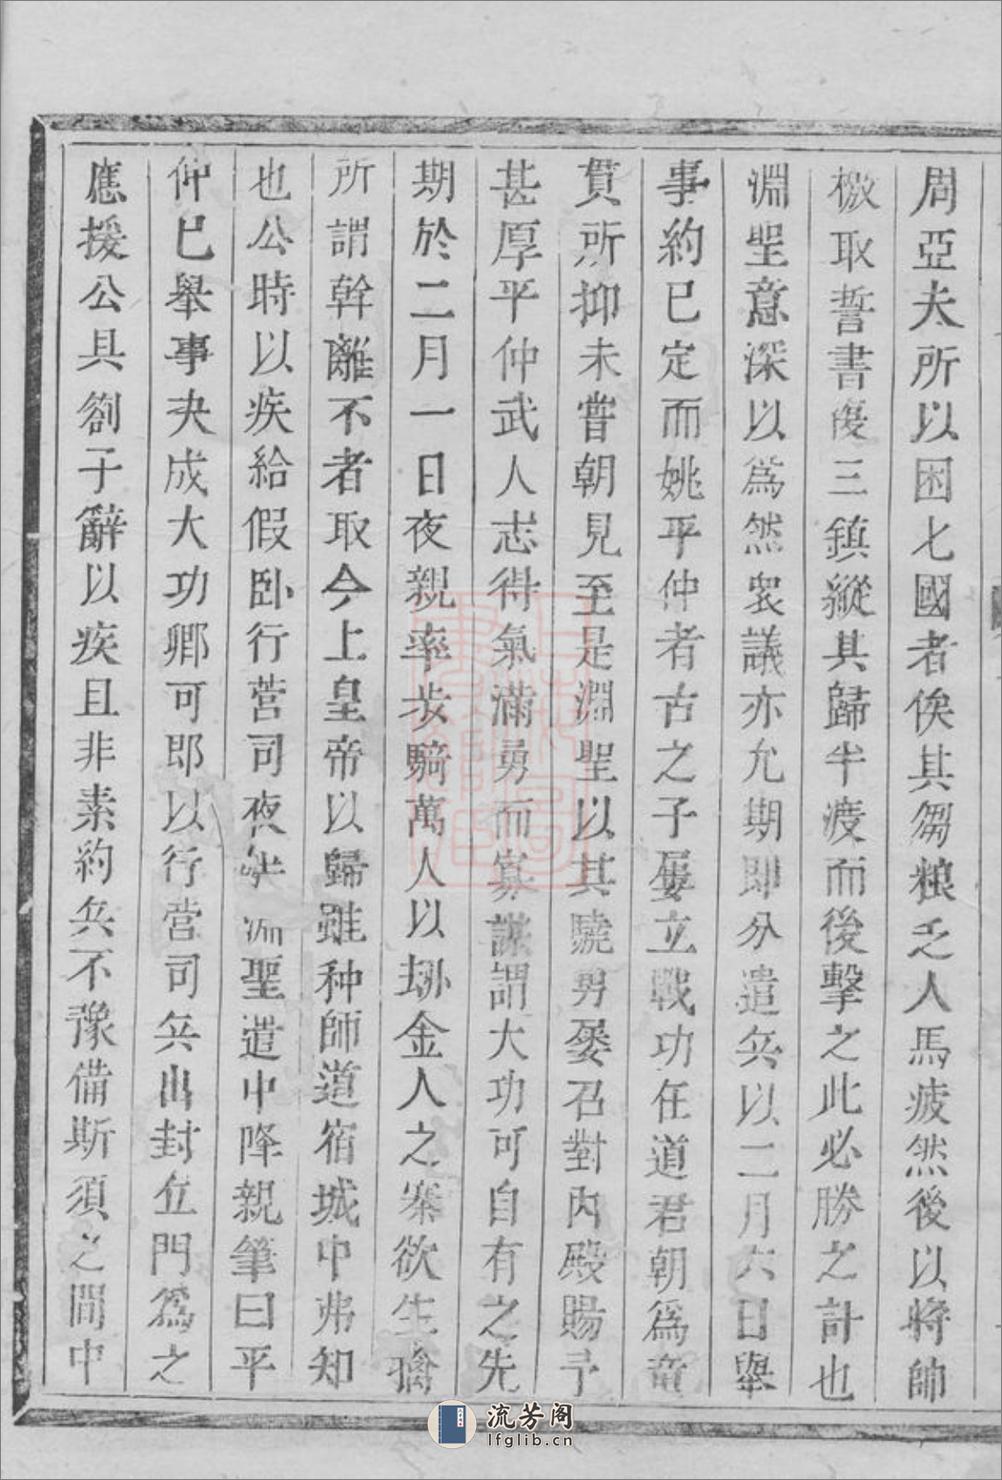 周亞夫所以困七國者俟其芻粮乏人馬疲然後以將帥
檄取誓書復三鎮縱其歸半渡而後擊之此必勝之計也
淵聖意深以爲然衆議亦允期即分遣兵以二月六日舉
事約已定而姚平仲者古之子屢立戰功在道君朝爲童
貫所抑未嘗朝見至是淵聖以其驍勇屢召對內殿賜予
甚厚平仲武人志得氣滿勇而寡謀謂大功可自有之先
期於二月一日夜親率步騎萬人以刼金人之寨欲生擒
所謂幹離不者取今上皇帝以歸雖种師道宿城中弗知
也公時以疾給假卧行營司夜半淵聖遣中降親筆曰平
仲已舉事决成大功卿可即以行營司兵出封丘門爲之
應援公具劄子辭以疾且非素約兵不豫備斯須之間中
流芳阁
lfglib.cn